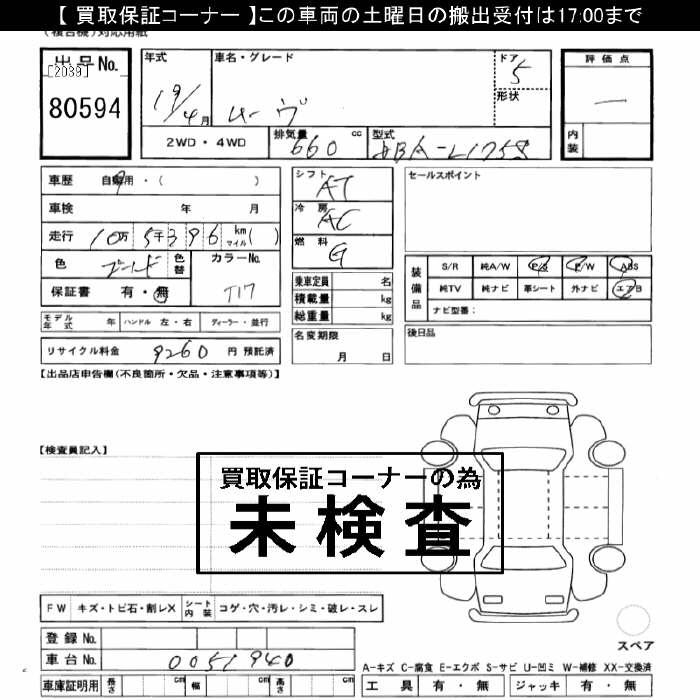 【 買取保証コーナー 】この車両の土曜日の搬出受付は17:00まで
(複合機)対応用紙
出品No.
[2039]
80594
年式
19/4月
車名・グレード
ムーヴ
ドア
5
形状
評価点
内装
2WD・4WD
排気量
660 cc
型式
DBA-L175S
車歴 自家用・( )
車検 年 月
走行 10万 5千396 km マイル ( )
色 ゴールド
色替
カラーNo.
T17
保証書 有・無
モデル年式 年 ハンドル 左・右 ディーラー・並行
リサイクル料金 9260 円 預託済
シフト
AT
冷房
AC
燃料
G
乗車定員 名
積載量 kg
総重量 kg
名変期限
月 日
セールスポイント
装備品
S/R 純A/W P/S P/W ABS
純TV 純ナビ 革シート 外ナビ エアB
ナビ型番:
後日品
【出品店申告欄(不良箇所・欠品・注意事項等)】
【検査員記入】
買取保証コーナーの為
未検査
FW キズ・トビ石・割レX シート内装 コゲ・穴・汚レ・シミ・破レ・スレ
登録No.
車台No. 0051940
車庫証明用 長さ cm 幅 cm 高さ cm
スペア
A-キズ C-腐食 E-エクボ S-サビ U-凹ミ W-補修 XX-交換済
工具 有・無 ジャッキ 有・無